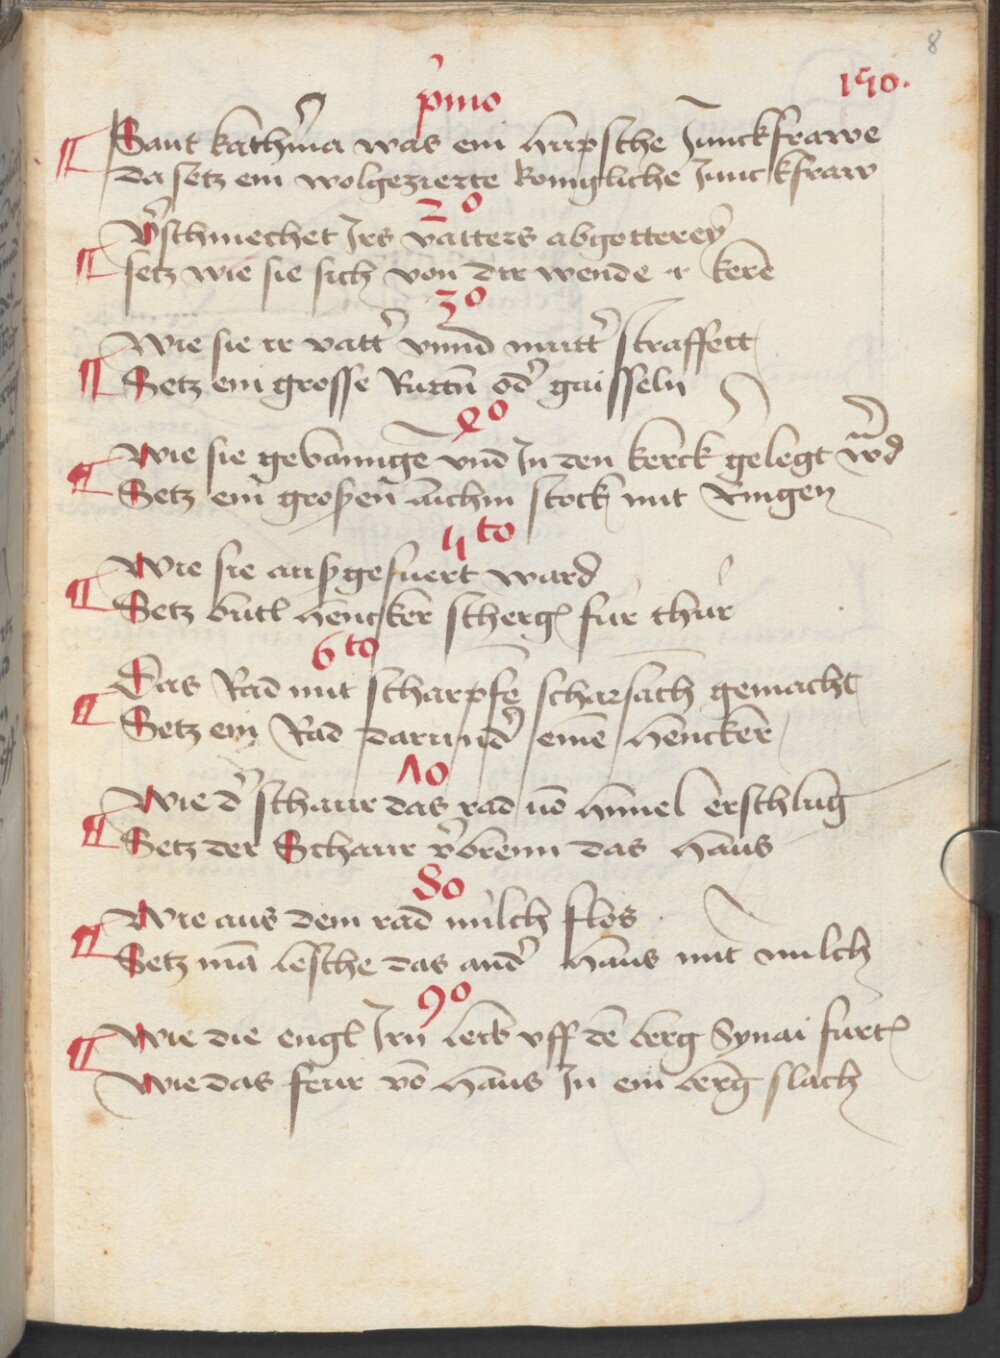 8
150.
pmo
Sant kathrina was ein hupsche Junckfrawe
da setz ein wolgezierte konigliche Junckfraw
2o
Vschmechet Jrs vatters abgotterey
setz wie sie sich von dir wende r kere
3o
Wie sie ir vatt vnnd mutt straffett
Setz ein grosse Rutten od gaisseln
4o
Wie sie gevanngē vnd Jn den kerck gelegt wd
Setz ein grossen aichin stock mit Ringen
5to
Wie sie aussgefuert ward
Setz butl hencker scherg fur thur
6to
Das Rad mit scharpfē scharsach gemacht
Setz ein Rad darund einē hencker
7o
Wie d schaur das rad vō himel erschlug
Setz der Schaur vbrenn das haus
8o
Wie aus dem rad milch flos
Setz mā lesche das and haus mit milch
9o
Wie die engl Jrn leib vff dē berg Synai furt
Wie das feur vō haus Jn ein berg slach